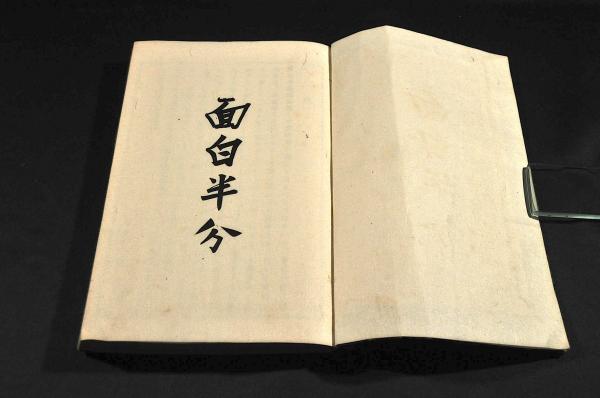 面白半分